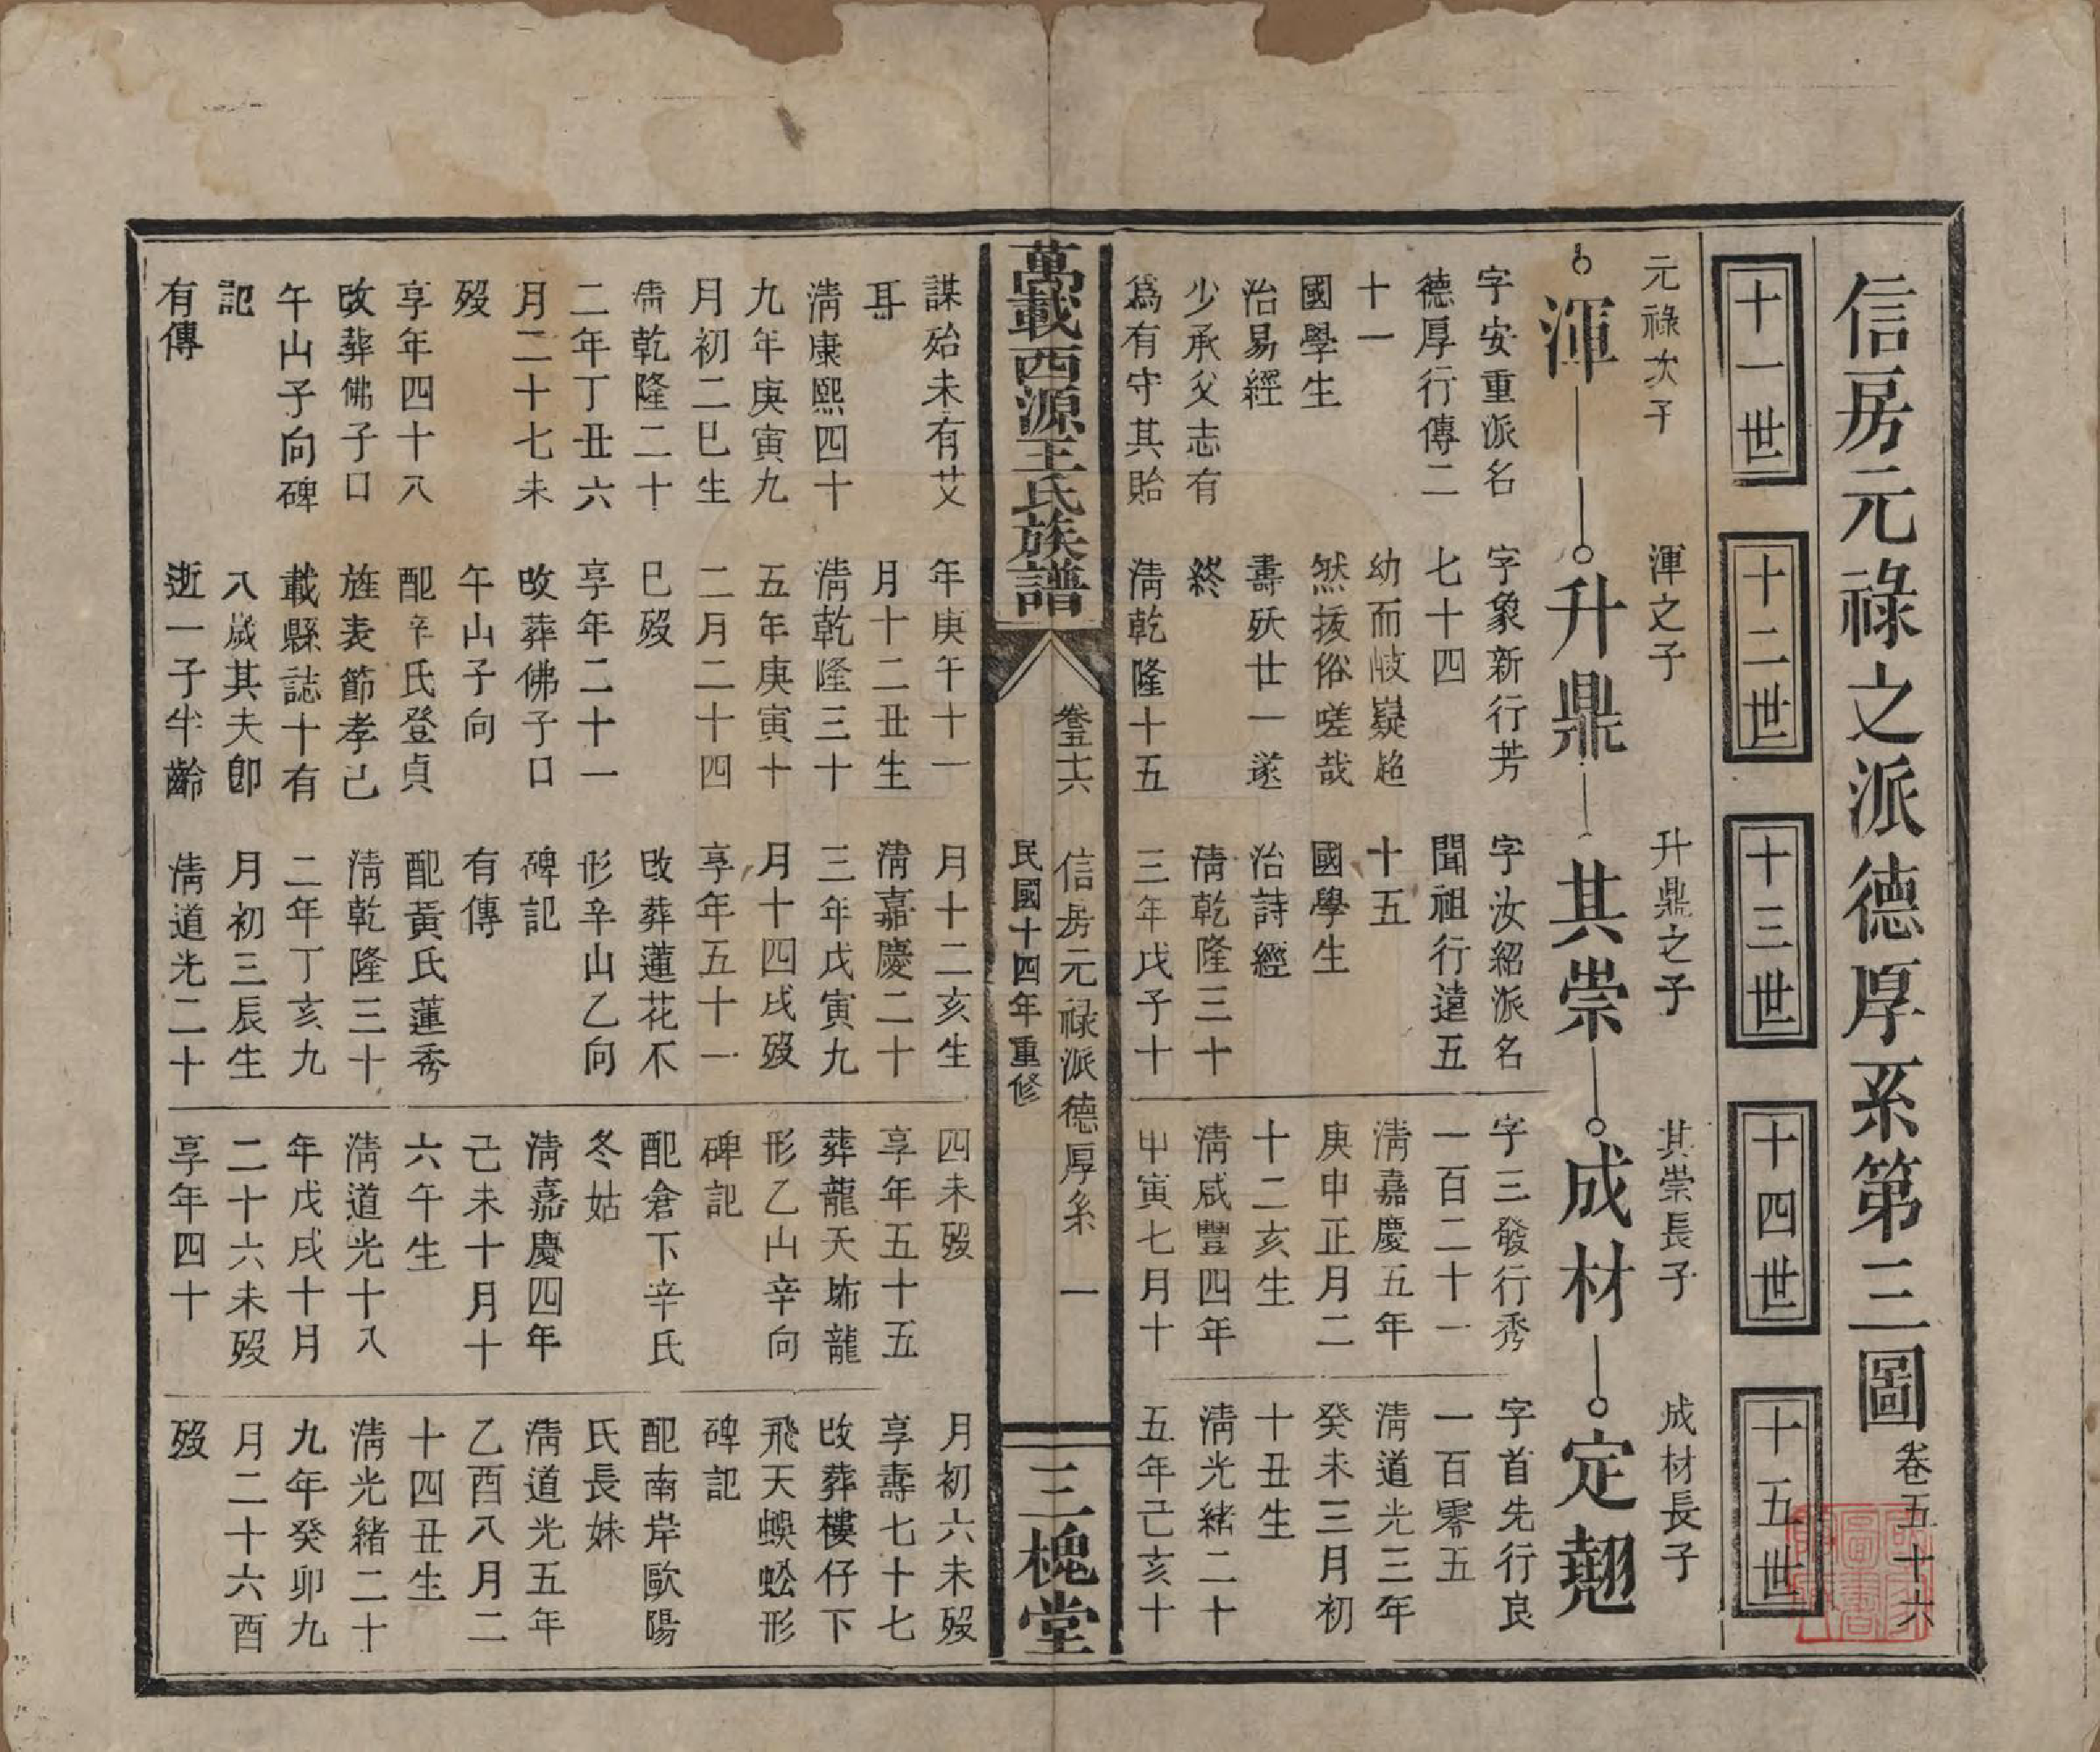 信房元祿之派德厚系第三圖 卷五十六
十一世
十二世
十三世
十四世
十五世
元祿次子
渾
字安重派名
德厚行傳二
十一
國學生
治易經
少承父志有
爲有守其貽
謀始未有艾
耳
淸康熙四十
九年庚寅九
月初二巳生
淸乾隆二十
二年丁丑六
月二十七未
歿
享年四十八
改葬佛子口
午山子向碑
記
有傳
渾之子
升鼎
字象新行芳
七十四
幼而岐嶷超
然拔俗嗟哉
壽殀廿一遂
終
淸乾隆十五
年庚午十一
月十二丑生
淸乾隆三十
五年庚寅十
二月二十四
巳歿
享年二十一
改葬佛子口
午山子向
配辛氏登貞
旌表節孝己
載縣誌十有
八歲其夫卽
逝一子半齡
升鼎之子
其崇
字汝紹派名
聞祖行遠五
十五
國學生
治詩經
淸乾隆三十
三年戊子十
月十二亥生
淸嘉慶二十
三年戊寅九
月十四戌歿
享年五十一
改葬蓮花不
形辛山乙向
碑記
有傳
配黃氏蓮秀
淸乾隆三十
二年丁亥九
月初三辰生
淸道光二十
其崇長子
成材
字三發行秀
一百二十一
淸嘉慶五年
庚申正月二
十二亥生
淸咸豐四年
甲寅七月十
四未歿
享年五十五
葬龍天坳龍
形乙山辛向
碑記
配倉下辛氏
冬姑
淸嘉慶四年
己未十月十
六午生
淸道光十八
年戊戌十月
二十六未歿
享年四十
成材長子
定翹
字首先行良
一百零五
淸道光三年
癸未三月初
十丑生
淸光緖二十
五年己亥十
月初六未歿
享壽七十七
改葬樓仔下
飛天蜈蚣形
碑記
配南岸歐陽
氏長妹
淸道光五年
乙酉八月二
十四丑生
淸光緖二十
九年癸卯九
月二十六酉
歿
萬載西源王氏族譜
卷五十六 信房元祿派德厚系 一
民國十四年重修
三槐堂